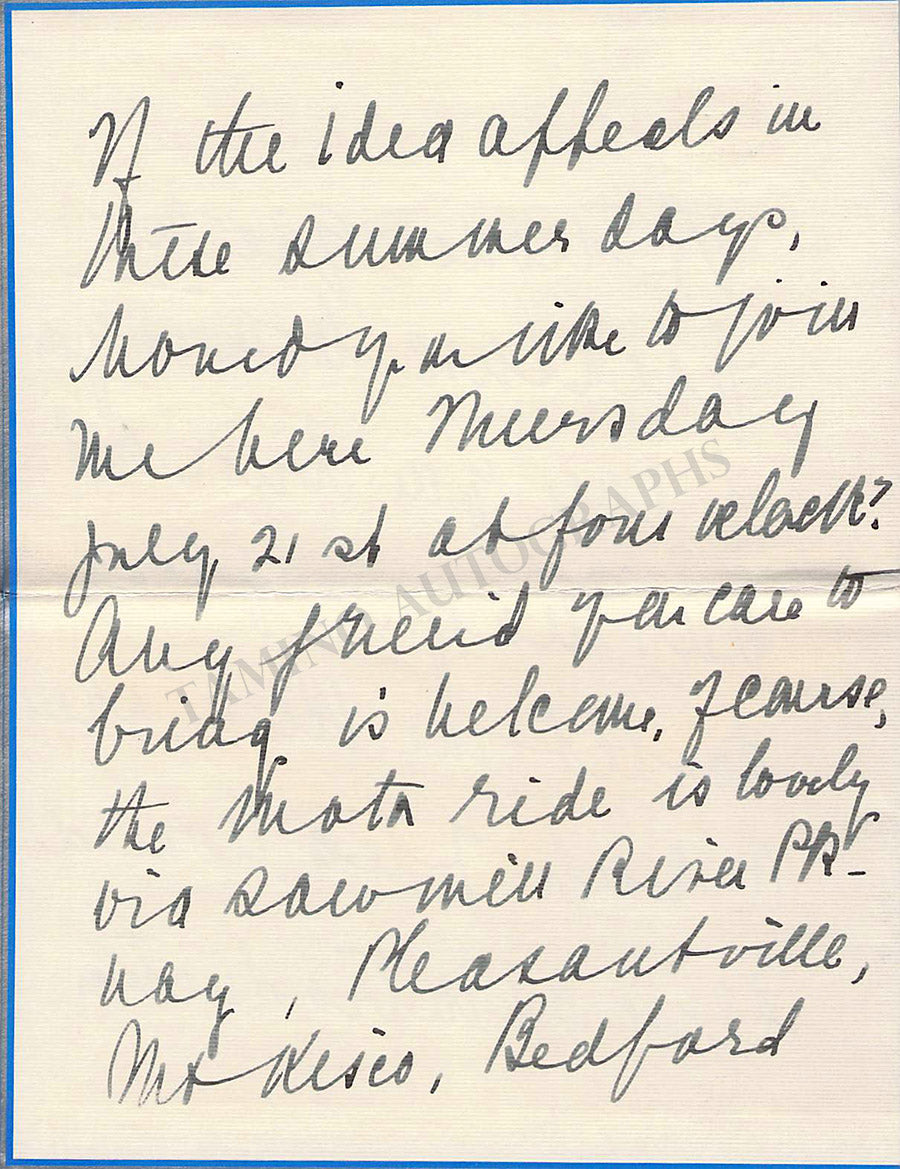 If the idea appeals in
these summer days,
would you like to join
me here Thursday
July 21st at four o'clock?
Any friend you care to
bring is welcome, of course,
the motor ride is lovely
via Sawmill River PK-
way, Pleasantville,
Mt Kisco, Bedford
TAMINO AUTOGRAPHS